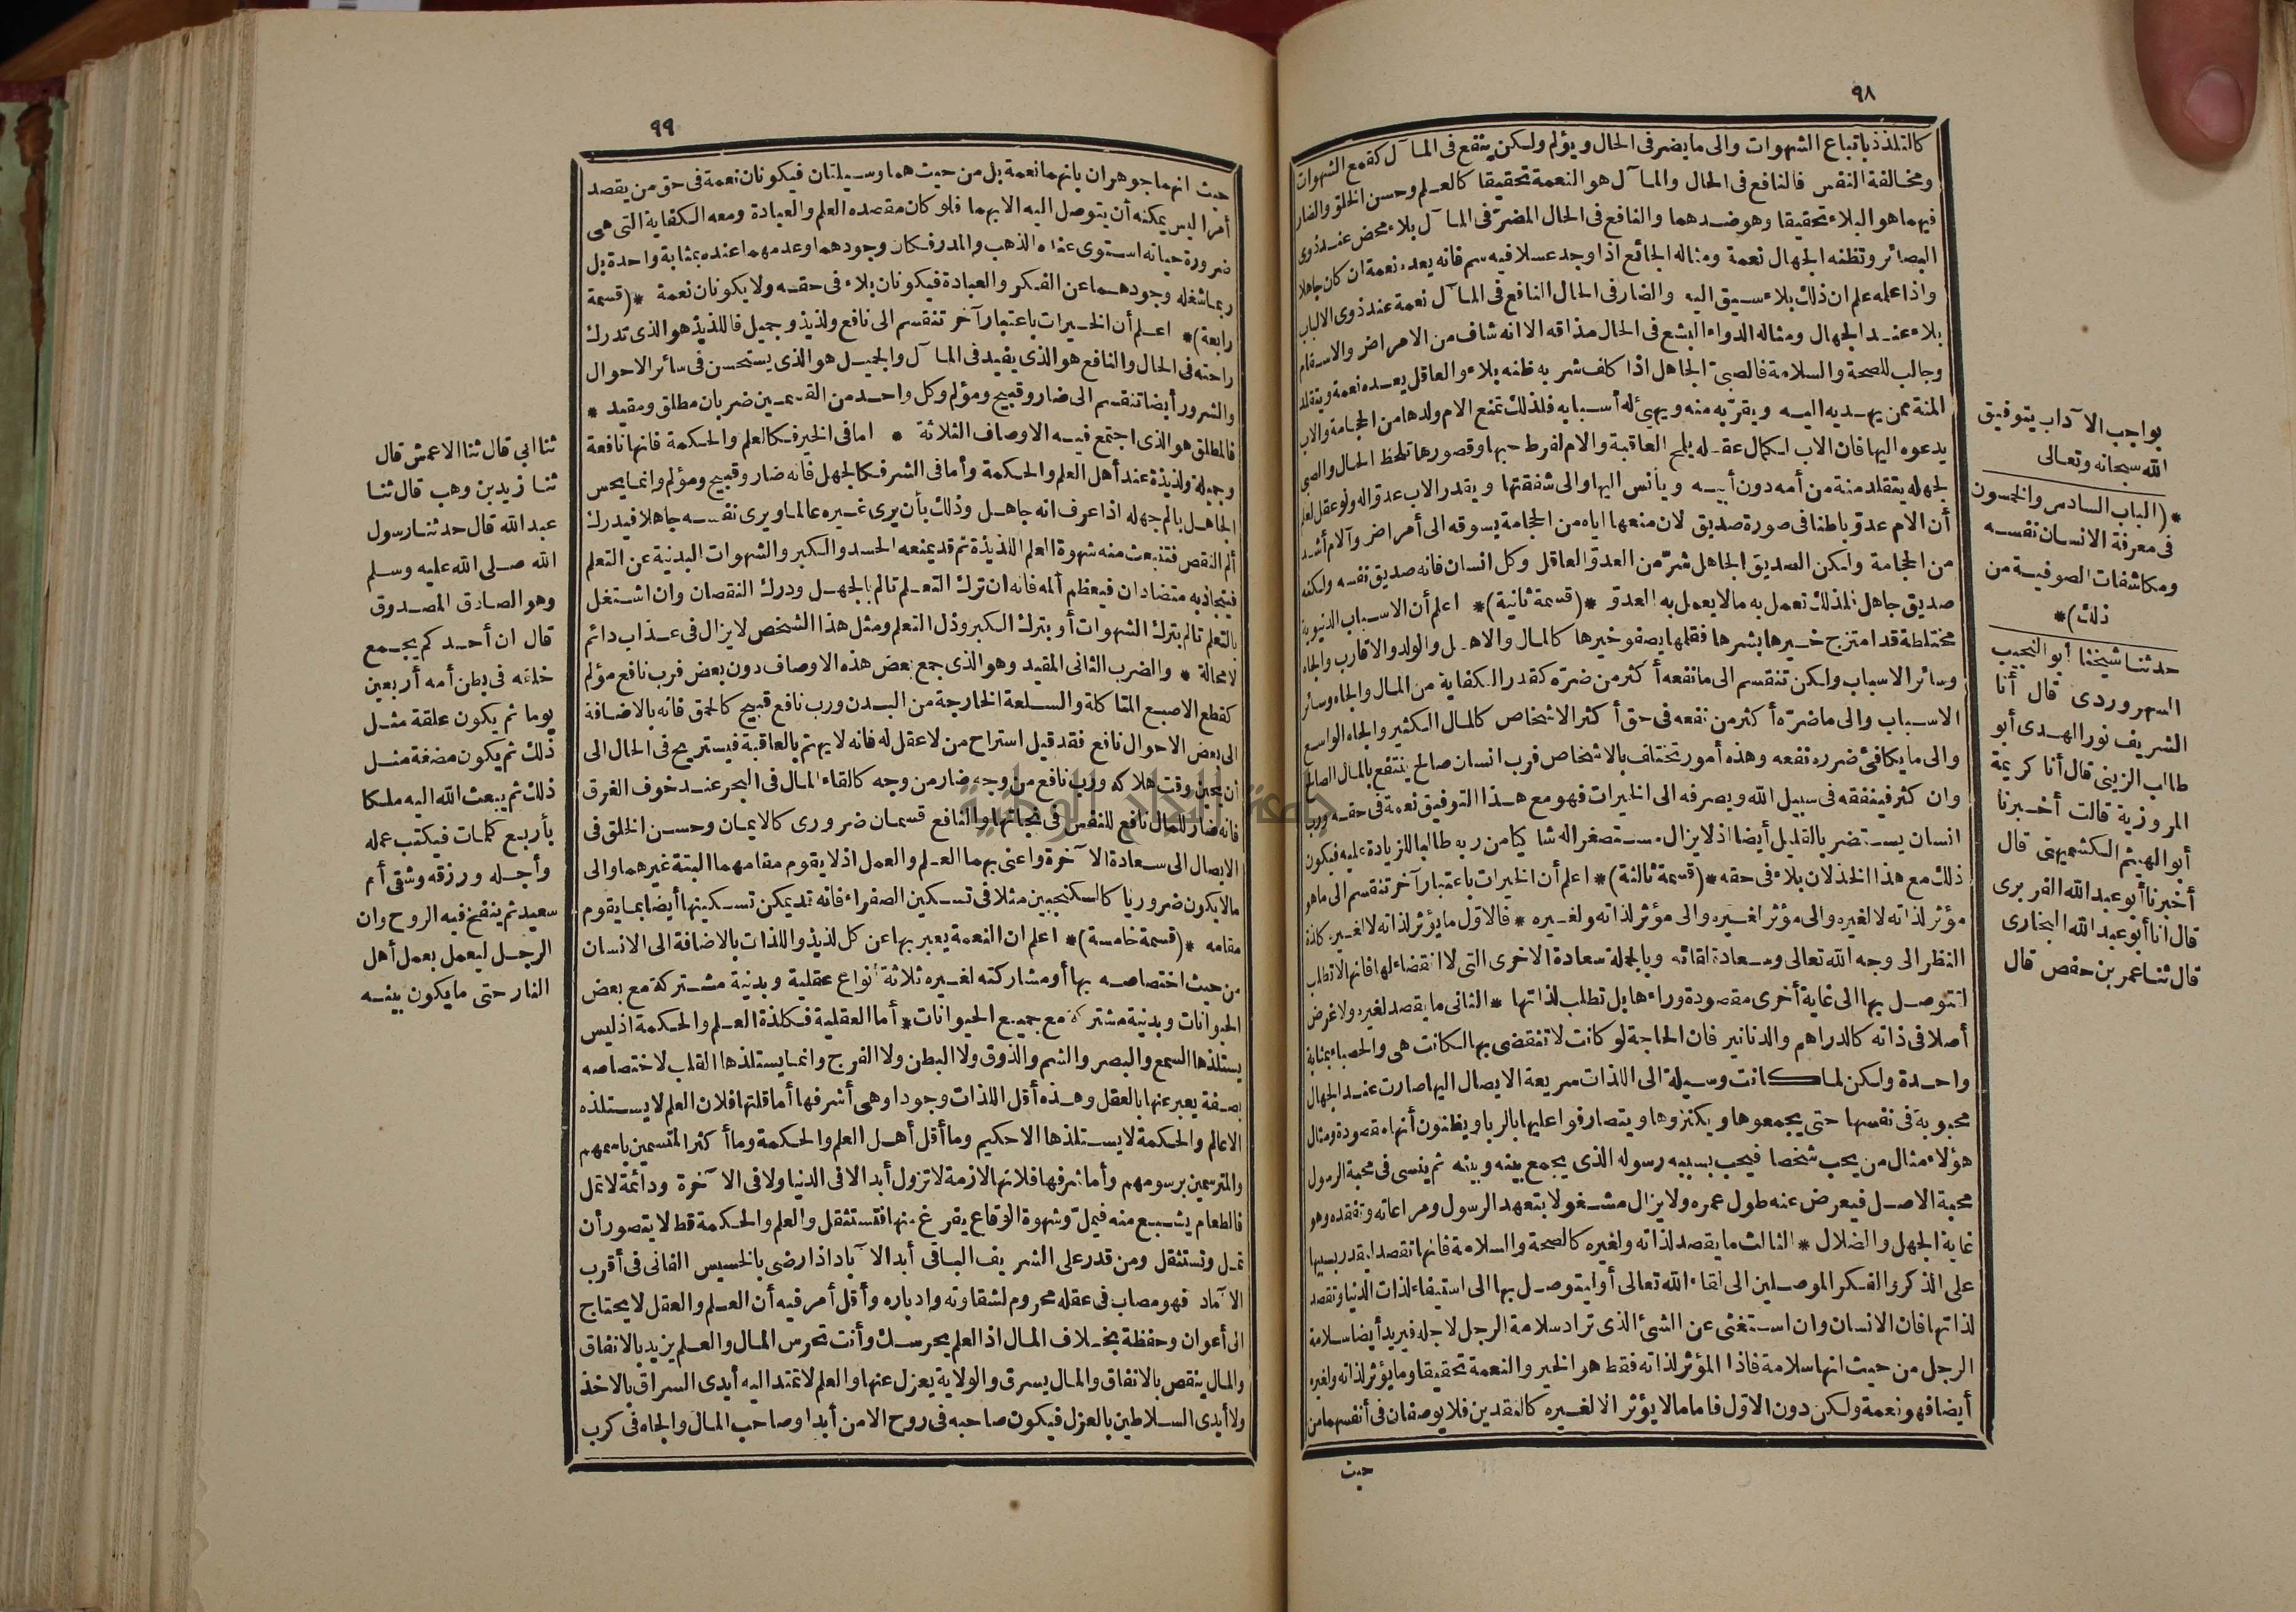 ٩٨
كالتلذذ باتباع الشهوات والى ما يضر فى الحال ويؤلم ولكن ينفع فى المآل كقمع الشهوات
ومخالفة النفس فالنافع فى الحال والمآل هو النعمة تحقيقا كالعلم وحسن الخلق والضار
فيهما هو البلاء تحقيقا وهو ضدهما والنافع فى الحال المضرّ فى المآل بلاء محض عند ذوى
البصائر وتظنه الجهال نعمة ومثاله الجائع اذا وجد عسلا فيه سم فانه يعده نعمة ان كان جاهلا
واذا علمه علم ان ذلك بلاء سيق اليه والضار فى الحال النافع فى المآل نعمة عند ذوى الالباب
بلاء عند الجهال ومثاله الدواء البشع فى الحال مذاقه الا انه شاف من الامراض والاسقام
وجالب للصحة والسلامة فالصبىّ الجاهل اذا كلف شربه ظنه بلاء والعاقل يعده نعمة ويتقلد
المنة ممن يهديه اليه ويقرّبه منه ويهيئ له أسبابه فلذلك تمنع الام ولدها من الحجامة والاب
يدعوه اليها فان الاب لكمال عقله يلمح العاقبة والام لفرط حبها وقصورها تلحظ الحال والصبى
لجهله يتقلد منة من أمه دون أبيه ويأنس اليها والى شفقتها ويقدر الاب عدوّا له ولو عقل لعلم
أن الام عدوّ باطنا فى صورة صديق لان منعها اياه من الحجامة يسوقه الى أمراض وآلام أشد
من الحجامة ولكن الصديق الجاهل شرّ من العدوّ العاقل وكل انسان فانه صديق نفسه ولكنه
صديق جاهل فلذلك تعمل به ما لا يعمل به العدوّ *(قسمة ثانية)* اعلم أن الاسباب الدنيوية
مختلطة قد امتزج خيرها بشرها فقلما يصفو خيرها كالمال والاهل والولد والاقارب والجاه
وسائر الاسباب ولكن تنقسم الى ما نفعه أكثر من ضرّه كقدر الكفاية من المال والجاه وسائر
الاسباب والى ما ضرّه أكثر من نفعه فى حق أكثر الاشخاص كالمال الكثير والجاه الواسع
والى ما يكافئ ضرره نفعه وهذه أمور تختلف بالاشخاص فرب انسان صالح ينتفع بالمال الصالح
وان كثر فينفقه فى سبيل الله ويصرفه الى الخيرات فهو مع هذا التوفيق نعمة فى حقه ورب
انسان يستضر بالقليل أيضا اذ لا يزال مستصغرا له شاكيا من ربه طالبا للزيادة عليه فيكون
ذلك مع هذا الخذلان بلاء فى حقه *(قسمة ثالثة)* اعلم أن الخيرات باعتبار آخر تنقسم الى ما هو
مؤثر لذاته لا لغيره والى مؤثر لغيره والى مؤثر لذاته ولغيره * فالاوّل ما يؤثر لذاته لا لغيره كلذة
النظر الى وجه الله تعالى وسعادة لقائه وبالجملة سعادة الاخرى التى لا انقضاء لها فانها لا تطلب
لتتوصل بها الى غاية أخرى مقصودة وراءها بل تطلب لذاتها * الثانى ما يقصد لغيره ولا غرض
أصلا فى ذاته كالدراهم والدنانير فان الحاجة لو كانت لا تنقضى بها لكانت هى والحصباء بمثابة
واحدة ولكن لما كانت وسيلة الى اللذات سريعة الايصال اليها صارت عند الجهال
محبوبة فى نفسها حتى يجمعوها ويكنزوها ويتصارفوا عليها بالربا ويظنون أنها مقصودة ومثال
هؤلاء مثال من يحب شخصا فيحب بسببه رسوله الذى يجمع بينه وبينه ثم ينسى فى محبة الرسول
محبة الاصل فيعرض عنه طول عمره ولا يزال مشغولا بتعهد الرسول ومراعاته وتفقده وهو
غاية الجهل والضلال * الثالث ما يقصد لذاته ولغيره كالصحة والسلامة فانها تقصد ليقدر بسببها
على الذكر والفكر الموصلين الى لقاء الله تعالى أو ليتوصل بها الى استيفاء لذات الدنيا وتقصد
لذاتها فان الانسان وان استغنى عن الشئ الذى تراد سلامة الرجل لاجله فيريد أيضا سلامة
الرجل من حيث انها سلامة فاذا المؤثر لذاته فقط هو الخير والنعمة تحقيقا وما يؤثر لذاته ولغيره
أيضا فهو نعمة ولكن دون الاوّل فاما ما لا يؤثر الا لغيره كالنقدين فلا يوصفان فى أنفسهما من
حيث
بواجب الآداب بتوفيق
الله سبحانه وتعالى
*(الباب السادس والخمسون
فى معرفة الانسان نفسه
ومكاشفات الصوفية من
ذلك)*
حدثنا شيخنا أبو النجيب
السهروردى قال أنا
الشريف نور الهدى أبو
طالب الزينى قال أنا كريمة
المروزية قالت أخبرنا
أبو الهيثم الكشميهنى قال
أخبرنا أبو عبد الله الفربرى
قال انا أبو عبد الله البخارى
قال ثنا عمر بن حفص قال
٩٩
حيث انهما جوهران بانهما نعمة بل من حيث هما وسيلتان فيكونان نعمة فى حق من يقصد
أمرا ليس يمكنه أن يتوصل اليه الا بهما فلو كان مقصده العلم والعبادة ومعه الكفاية التى هى
ضرورة حياته استوى عنده الذهب والمدر فكان وجودهما وعدمهما عنده بمثابة واحدة بل
ربما شغله وجودهما عن الفكر والعبادة فيكونان بلاء فى حقه ولا يكونان نعمة *(قسمة
رابعة)* اعلم أن الخيرات باعتبار آخر تنقسم الى نافع ولذيذ وجميل فاللذيذ هو الذى تدرك
راحته فى الحال والنافع هو الذى يفيد فى المآل والجميل هو الذى يستحسن فى سائر الاحوال
والشرور أيضا تنقسم الى ضار وقبيح ومؤلم وكل واحد من القسمين ضربان مطلق ومقيد *
فالمطلق هو الذى اجتمع فيه الاوصاف الثلاثة * اما فى الخير فكالعلم والحكمة فانها نافعة
وجميلة ولذيذة عند أهل العلم والحكمة وأما فى الشر فكالجهل فانه ضار وقبيح ومؤلم وانما يحس
الجاهل بالم جهله اذا عرف انه جاهل وذلك بأن يرى غيره عالما ويرى نفسه جاهلا فيدرك
ألم النقص فتنبعث منه شهوة العلم اللذيذة ثم قد يمنعه الحسد والكبر والشهوات البدنية عن التعلم
فيتجاذبه متضادان فيعظم ألمه فانه ان ترك التعلم تالم بالجهل ودرك النقصان وان اشتغل
بالتعلم تالم بترك الشهوات أو بترك الكبر وذل التعلم ومثل هذا الشخص لا يزال فى عذاب دائم
لا محالة * والضرب الثانى المقيد وهو الذى جمع بعض هذه الاوصاف دون بعض فرب نافع مؤلم
كقطع الاصبع المتاكلة والسلعة الخارجة من البدن ورب نافع قبيح كالحمق فانه بالاضافة
الى بعض الاحوال نافع فقد قيل استراح من لا عقل له فانه لا يهتم بالعاقبة فيستريح فى الحال الى
أن يحين وقت هلاكه ورب نافع من وجه ضار من وجه كالقاء المال فى البحر عند خوف الغرق
فانه ضار للمال نافع للنفس فى نجاتها والنافع قسمان ضرورى كالايمان وحسن الخلق فى
الايصال الى سعادة الآخرة واعنى بهما العلم والعمل اذ لا يقوم مقامهما البتة غيرهما والى
ما لا يكون ضروريا كالسكنجبين مثلا فى تسكين الصفراء فانه قد يمكن تسكينها أيضا بما يقوم
مقامه *(قسمة خامسة)* اعلم ان النعمة يعبر بها عن كل لذيذ واللذات بالاضافة الى الانسان
من حيث اختصاصه بها أو مشاركته لغيره ثلاثة أنواع عقلية وبدنية مشتركة مع بعض
الحيوانات وبدنية مشتركة مع جميع الحيوانات * أما العقلية فكلذة العلم والحكمة اذ ليس
يستلذها السمع والبصر والشم والذوق ولا البطن ولا الفرج وانما يستلذها القلب لاختصاصه
بصفة يعبر عنها بالعقل وهذه أقل اللذات وجودا وهى أشرفها أما قلتها فلان العلم لا يستلذه
الا عالم والحكمة لا يستلذها الا حكيم وما أقل أهل العلم والحكمة وما أكثر المتسمين باسمهم
والمترسمين برسومهم وأما شرفها فلانها لازمة لا تزول أبدا لا فى الدنيا ولا فى الآخرة ودائمة لا تمل
فالطعام يشبع منه فيملّ وشهوة الوقاع يفرغ منها فتستثقل والعلم والحكمة قط لا يتصور أن
تمل وتستثقل ومن قدر على الشريف الباقى أبد الآباد اذا رضى بالخسيس الفانى فى أقرب
الآماد فهو مصاب فى عقله محروم لشقاوته وادباره وأقل أمر فيه أن العلم والعقل لا يحتاج
الى أعوان وحفظة بخلاف المال اذ العلم يحرسك وأنت تحرس المال والعلم يزيد بالانفاق
والمال ينقص بالانفاق والمال يسرق والولاية يعزل عنها والعلم لا تمتد اليه أيدى السراق بالاخذ
ولا أيدى السلاطين بالعزل فيكون صاحبه فى روح الامن أبدا وصاحب المال والجاه فى كرب
ثنا ابى قال ثنا الاعمش قال
ثنا زيد بن وهب قال ثنا
عبد الله قال حدثنا رسول
الله صلى الله عليه وسلم
وهو الصادق المصدوق
قال ان أحدكم يجمع
خلقه فى بطن أمه أربعين
يوما ثم يكون علقة مثل
ذلك ثم يكون مضغة مثل
ذلك ثم يبعث الله اليه ملكا
بأربع كلمات فيكتب عمله
وأجله ورزقه وشقى أم
سعيد ثم ينفخ فيه الروح وان
الرجل ليعمل بعمل أهل
النار حتى ما يكون بينه